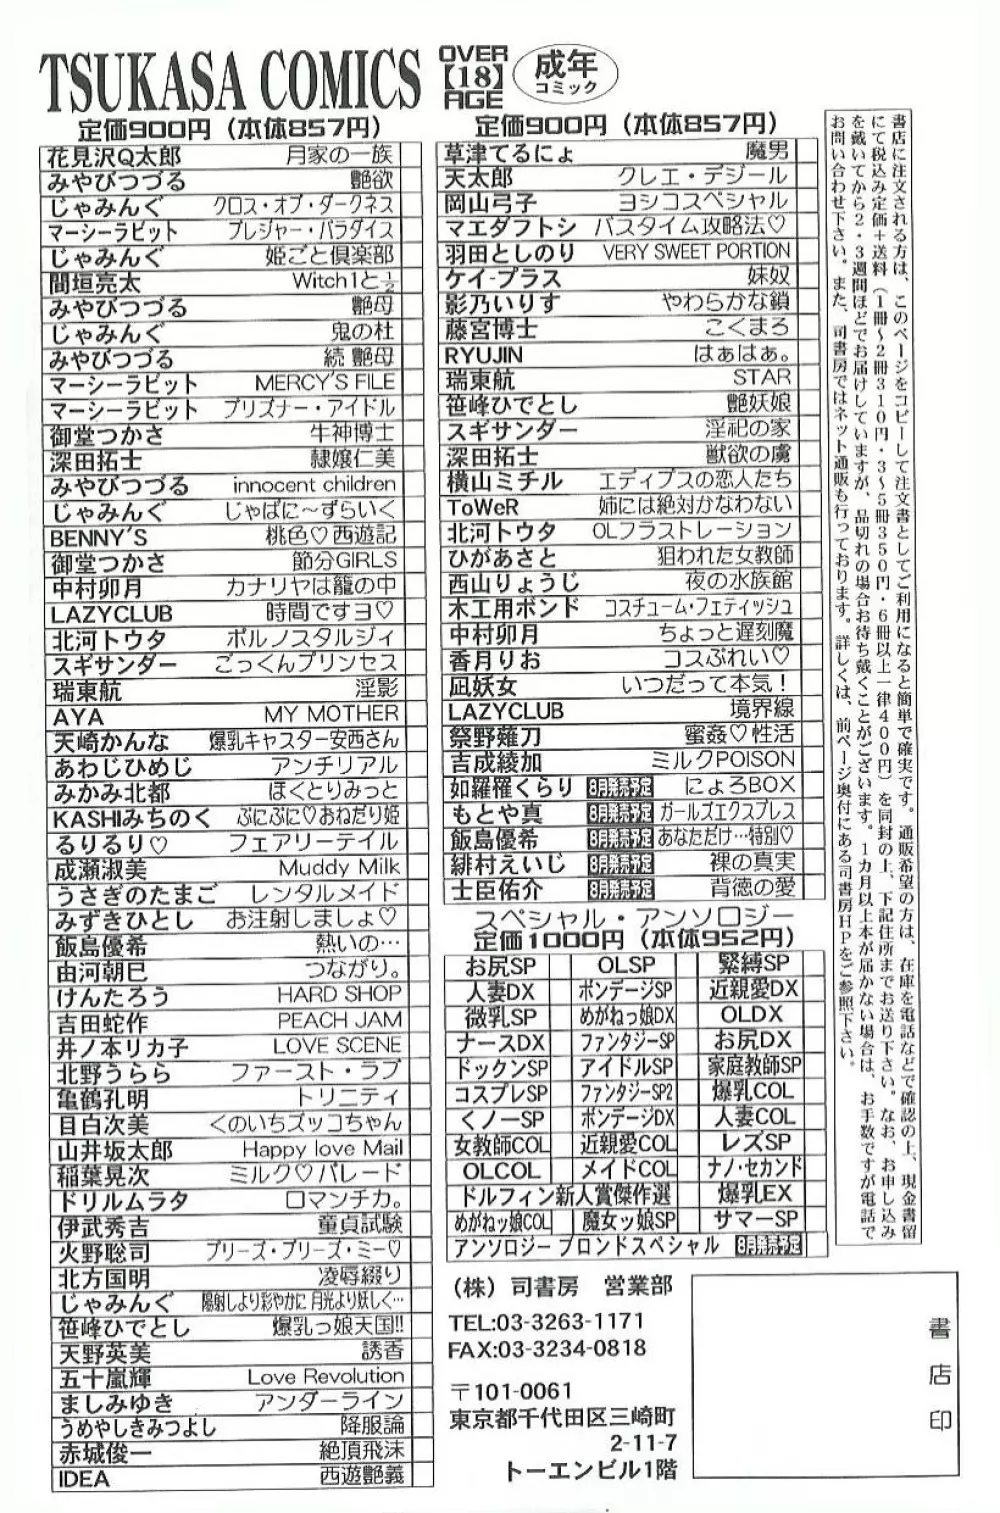 TSUKASA COMICS
OVER
【18】
AGE
成年
コミック
定価900円（本体857円）
花見沢Q太郎 月家の一族
みやびつづる 艶欲
じゃみんぐ クロス・オブ・ダークネス
マーシーラビット プレジャー・パラダイス
じゃみんぐ 姫ごと倶楽部
間垣亮太 Witch1と½
みやびつづる 艶母
じゃみんぐ 鬼の杜
みやびつづる 続 艶母
マーシーラビット MERCY'S FILE
マーシーラビット プリズナー・アイドル
御堂つかさ 牛神博士
深田拓士 隷嬢仁美
みやびつづる innocent children
じゃみんぐ じゃぱに〜ずらいく
BENNY'S 桃色♡西遊記
御堂つかさ 節分GIRLS
中村卯月 カナリヤは籠の中
LAZYCLUB 時間ですヨ♡
北河トウタ ポルノスタルジィ
スギサンダー ごっくんプリンセス
瑞東航 淫影
AYA MY MOTHER
天崎かんな 爆乳キャスター安西さん
あわじひめじ アンチリアル
みかみ北都 ほくとりみっと
KASHIみちのく ぷにぷに♡おねだり姫
るりるり♡ フェアリーテイル
成瀬淑美 Muddy Milk
うさぎのたまご レンタルメイド
みずきひとし お注射しましょ♡
飯島優希 熱いの…
由河朝巳 つながり。
けんたろう HARD SHOP
吉田蛇作 PEACH JAM
井ノ本リカ子 LOVE SCENE
北野うらら ファースト・ラブ
亀鶴孔明 トリニティ
目白次美 くのいちズッコちゃん
山井坂太郎 Happy love Mail
稲葉晃次 ミルク♡パレード
ドリルムラタ ロマンチカ。
伊武秀吉 童貞試験
火野聡司 プリーズ・プリーズ・ミー♡
北方国明 凌辱綴り
じゃみんぐ 陽射しより彩やかに 月光より妖しく…
笹峰ひでとし 爆乳っ娘天国!!
天野英美 誘香
五十嵐輝 Love Revolution
ましみゆき アンダーライン
うめやしきみつよし 降服論
赤城俊一 絶頂飛沫
IDEA 西遊艶義
定価900円（本体857円）
草津てるにょ 魔男
天太郎 クレエ・デジール
岡山弓子 ヨシコスペシャル
マエダフトシ バスタイム攻略法♡
羽田としのり VERY SWEET PORTION
ケイ-プラス 妹奴
影乃いりす やわらかな鎖
藤宮博士 こくまろ
RYUJIN はぁはぁ。
瑞東航 STAR
笹峰ひでとし 艶妖娘
スギサンダー 淫祀の家
深田拓士 獣欲の虜
横山ミチル エディプスの恋人たち
ToWeR 姉には絶対かなわない
北河トウタ OLフラストレーション
ひがあさと 狙われた女教師
西山りょうじ 夜の水族館
木工用ボンド コスチューム・フェティッシュ
中村卯月 ちょっと遅刻魔
香月りお コスぷれい♡
凪妖女 いつだって本気！
LAZYCLUB 境界線
祭野薙刀 蜜姦♡性活
吉成綾加 ミルクPOISON
如羅帷くらり 8月発売予定 にょろBOX
もとや真 8月発売予定 ガールズエクスプレス
飯島優希 8月発売予定 あなただけ…特別♡
緋村えいじ 8月発売予定 裸の真実
士臣佑介 8月発売予定 背徳の愛
スペシャル・アンソロジー
定価1000円（本体952円）
お尻SP OLSP 緊縛SP
人妻DX ボンデージSP 近親愛DX
微乳SP めがねっ娘DX OLDX
ナースDX ファンタジーSP お尻DX
ドックンSP アイドルSP 家庭教師SP
コスプレSP ファンタジーSP2 爆乳COL
くノ一SP ボンデージDX 人妻COL
女教師COL 近親愛COL レズSP
OLCOL メイドCOL ナノ・セカンド
ドルフィン新人賞傑作選 爆乳EX
めがねッ娘COL 魔女ッ娘SP サマーSP
アンソロジー ブロンドスペシャル 8月発売予定
書店に注文される方は、このページをコピーして注文書としてご利用になると簡単で確実です。通販希望の方は、在庫を電話などで確認の上、現金書留
にて税込み定価＋送料（1冊〜2冊310円・3〜5冊350円・6冊以上一律400円）を同封の上、下記住所までお送り下さい。なお、お申し込み
を戴いてから2・3週間ほどでお届けしていますが、品切れの場合お待ち戴くことがございます。1カ月以上本が届かない場合は、お手数ですが電話で
お問い合わせ下さい。また、司書房ではネット通販も行っております。詳しくは、前ページ奥付にある司書房HPをご参照下さい。
（株）司書房 営業部
TEL:03-3263-1171
FAX:03-3234-0818
〒101-0061
東京都千代田区三崎町
2-11-7
トーエンビル1階
書店印